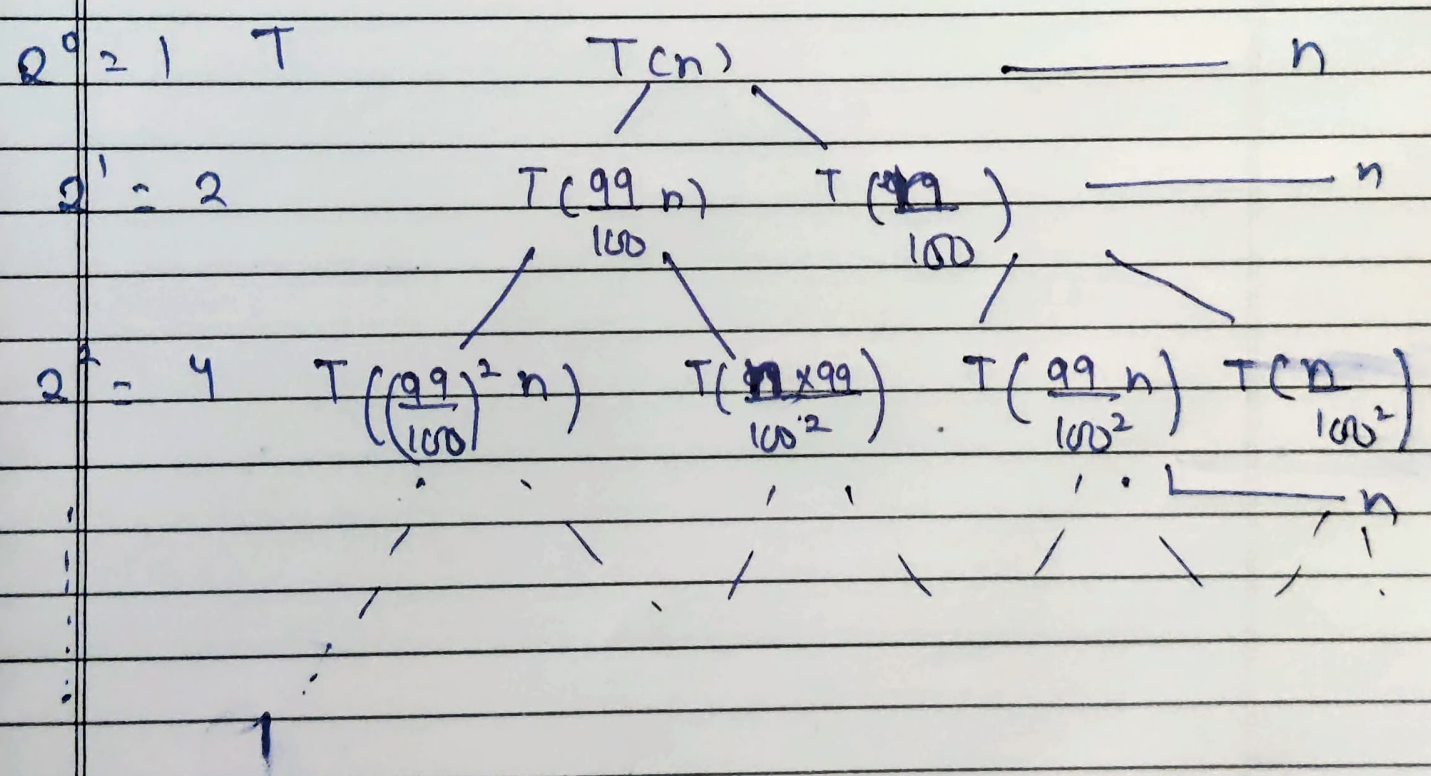 2⁰ = 1 T T(n) n
2¹ = 2 T(99/100 n) T(n/100) n
2² = 4 T((99/100)² n) T(n×99/100²) T(99/100² n) T(n/100²)
n
1